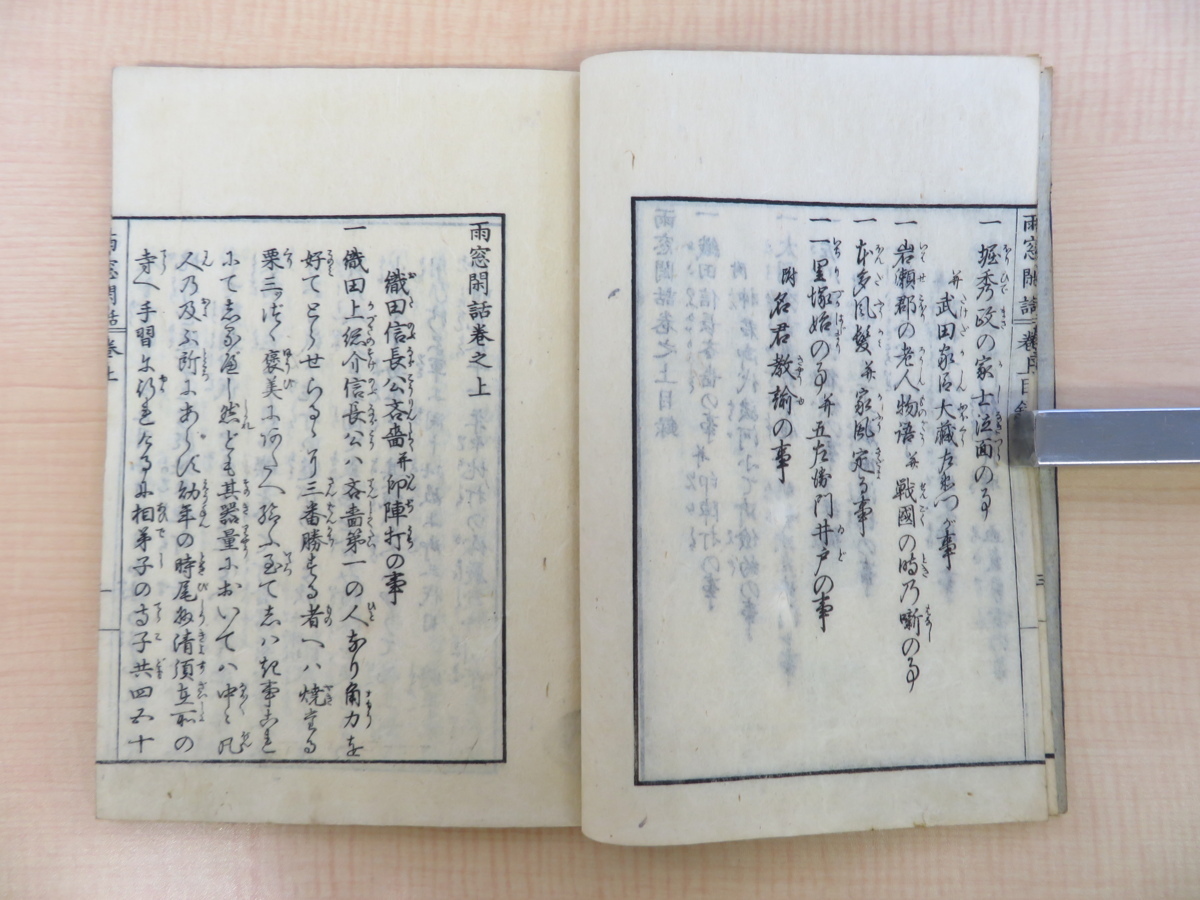 一 堀秀政の家士泣面の事
并武田家臣大蔵左衛門が事
一 岩瀬郡の老人物語并戦國の時乃噺の事
一 本多風髪并家風定る事
一 一里塚始の事并五左衛門井戸の事
附名君教諭の事
雨窓閑話巻之上
織田信長公吝嗇并印陣打の事
一 織田上総介信長公ハ吝嗇第一の人なり角力を
好てとらせらるゝに三番勝たる者へハ焼たる
栗三ツ褒美にあたへ給ふ至てしハき事これ
にてしるべし然ども其器量においてハ中々凡
人乃及ぶ所にあらず幼年の時尾州清須在所の
寺へ手習に行れけるに相弟子の寺子共四五十